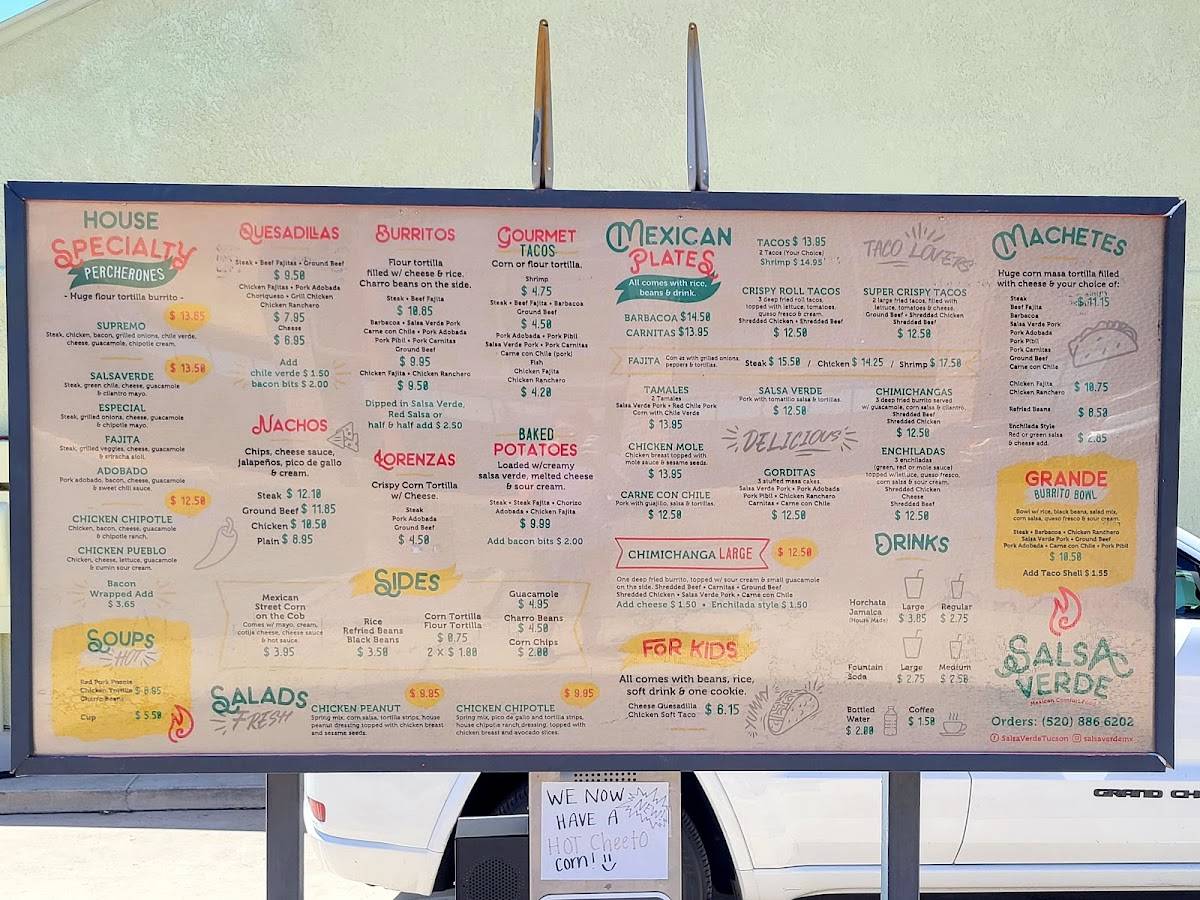 HOUSE
SPECIALTY
PERCHERONES
- Huge flour tortilla burrito -
$ 13.65
SUPREMO
Steak, chicken, bacon, grilled onions, chile verde,
cheese, guacamole, chipotle cream.
$ 13.50
SALSAVERDE
Steak, green chile, cheese, guacamole
& cilantro mayo.
ESPECIAL
Steak, grilled onions, cheese, guacamole
& chipotle mayo.
FAJITA
Steak, grilled veggies, cheese, guacamole
& sriracha aioli.
ADOBADO
Pork adobado, bacon, cheese, guacamole
& sweet chili sauce.
$ 12.50
CHICKEN CHIPOTLE
Chicken, bacon, cheese, guacamole
& chipotle ranch.
CHICKEN PUEBLO
Chicken, cheese, lettuce, guacamole
& cumin sour cream.
Bacon
Wrapped Add
$ 3.65
SOUPS
HOT
Red Pork Pozole
Chicken Tortilla $ 8.95
Charro Beans
Cup $ 5.50
QUESADILLAS
Steak • Beef Fajitas • Ground Beef
$ 9.50
Chicken Fajitas • Pork Adobada
Choriqueso • Grill Chicken
Chicken Ranchero
$ 7.95
Cheese
$ 6.95
Add
chile verde $ 1.50
bacon bits $ 2.00
NACHOS
Chips, cheese sauce,
jalapeños, pico de gallo
& cream.
Steak $ 12.10
Ground Beef $ 11.85
Chicken $ 10.50
Plain $ 8.95
BURRITOS
Flour tortilla
filled w/ cheese & rice.
Charro beans on the side.
Steak • Beef Fajita
$ 10.85
Barbacoa • Salsa Verde Pork
Carne con Chile • Pork Adobada
Pork Pibil • Pork Carnitas
Ground Beef
$ 9.95
Chicken Fajita • Chicken Ranchero
$ 9.50
Dipped in Salsa Verde,
Red Salsa or
half & half add $ 2.50
LORENZAS
Crispy Corn Tortilla
w/ Cheese.
Steak
Pork Adobada
Ground Beef
$ 4.50
GOURMET
TACOS
Corn or flour tortilla.
Shrimp
$ 4.75
Steak • Beef Fajita • Barbacoa
Ground Beef
$ 4.50
Pork Adobada • Pork Pibil
Salsa Verde Pork • Pork Carnitas
Carne con Chile (pork)
Fish
Chicken Fajita
Chicken Ranchero
$ 4.20
BAKED
POTATOES
Loaded w/creamy
salsa verde, melted cheese
& sour cream.
Steak • Steak Fajita • Chorizo
Adobada • Chicken Fajita
$ 9.99
Add bacon bits $ 2.00
SIDES
Mexican
Street Corn
on the Cob
Comes w/ mayo, cream,
cotija cheese, cheese sauce
& hot sauce.
$ 3.95
Rice
Refried Beans
Black Beans
$ 3.50
Corn Tortilla
Flour Tortilla
$ 0.75
2 x $ 1.00
Guacamole
$ 4.95
Charro Beans
$ 4.50
Corn Chips
$ 2.00
SALADS
FRESH
$ 9.95
CHICKEN PEANUT
Spring mix, corn salsa, tortilla strips, house
peanut dressing topped with chicken breast
and sesame seeds.
$ 9.95
CHICKEN CHIPOTLE
Spring mix, pico de gallo and tortilla strips,
house chipotle ranch dressing, topped with
chicken breast and avocado slices.
MEXICAN
PLATES
All comes with rice,
beans & drink.
BARBACOA $14.50
CARNITAS $13.95
TACOS $ 13.95
2 Tacos (Your Choice)
Shrimp $ 14.95
CRISPY ROLL TACOS
3 deep fried roll tacos,
topped with lettuce, tomatoes,
queso fresco & cream.
Shredded Chicken • Shredded Beef
$ 12.50
TACO LOVERS
SUPER CRISPY TACOS
2 large fried tacos, filled with
lettuce, tomatoes & cheese.
Ground Beef • Shredded Chicken
Shredded Beef
$ 12.50
FAJITA Com es with grilled onions,
peppers & tortillas. Steak $ 15.50 / Chicken $ 14.25 / Shrimp $ 17.50
TAMALES
2 Tamales
Salsa Verde Pork • Red Chile Pork
Corn with Chile Verde
$ 13.95
CHICKEN MOLE
Chicken breast topped with
mole sauce & sesame seeds.
$ 13.95
CARNE CON CHILE
Pork w/ guajillo, salsa & tortillas.
$ 12.50
SALSA VERDE
Pork with tomatillo salsa & tortillas.
$ 12.50
DELICIOUS
GORDITAS
3 stuffed masa cakes.
Salsa Verde Pork • Pork Adobada
Pork Pibil • Chicken Ranchero
Carnitas • Carne con Chile
$ 12.50
CHIMICHANGAS
3 deep fried burrito served
w/ guacamole, corn salsa & cilantro.
Shredded Beef
Shredded Chicken
$ 12.50
ENCHILADAS
3 enchiladas
(green, red or mole sauce)
topped w/ lettuce, queso fresco,
corn salsa & sour cream.
Shredded Chicken
Cheese
Shredded Beef
$ 12.50
CHIMICHANGA LARGE $ 12.50
One deep fried burrito, topped w/ sour cream & small guacamole
on the side. Shredded Beef • Carnitas • Ground Beef
Shredded Chicken • Salsa Verde Pork • Carne con Chile
Add cheese $ 1.50 • Enchilada style $ 1.50
FOR KIDS
All comes with beans, rice,
soft drink & one cookie.
Cheese Quesadilla
Chicken Soft Taco $ 6.15
DRINKS
Horchata
Jamaica
(House Made)
Large
$ 3.85
Regular
$ 2.75
Fountain
Soda
Large
$ 2.75
Medium
$ 2.50
Bottled
Water
$ 2.00
Coffee
$ 1.50
MACHETES
Huge corn masa tortilla filled
with cheese & your choice of:
Steak $ 11.15
Beef Fajita
Barbacoa
Salsa Verde Pork
Pork Adobada
Pork Pibil
Pork Carnitas
Ground Beef
Carne con Chile
Chicken Fajita
Chicken Ranchero $ 10.75
Refried Beans $ 8.50
Enchilada Style
Red or green salsa
& cheese add. $ 2.85
GRANDE
BURRITO BOWL
Bowl w/ rice, black beans, salad mix,
corn salsa, queso fresco & sour cream.
Steak • Barbacoa • Chicken Ranchero
Salsa Verde Pork • Ground Beef
Pork Adobada • Carne con Chile • Pork Pibil
$ 10.50
Add Taco Shell $ 1.55
SALSA
VERDE
Mexican Comfort Food
Orders: (520) 886 6202
SalsaVerdeTucson salsaverdemx
WE NOW
HAVE A
NEW!
HOT Cheeto
corn!
GRAND CH